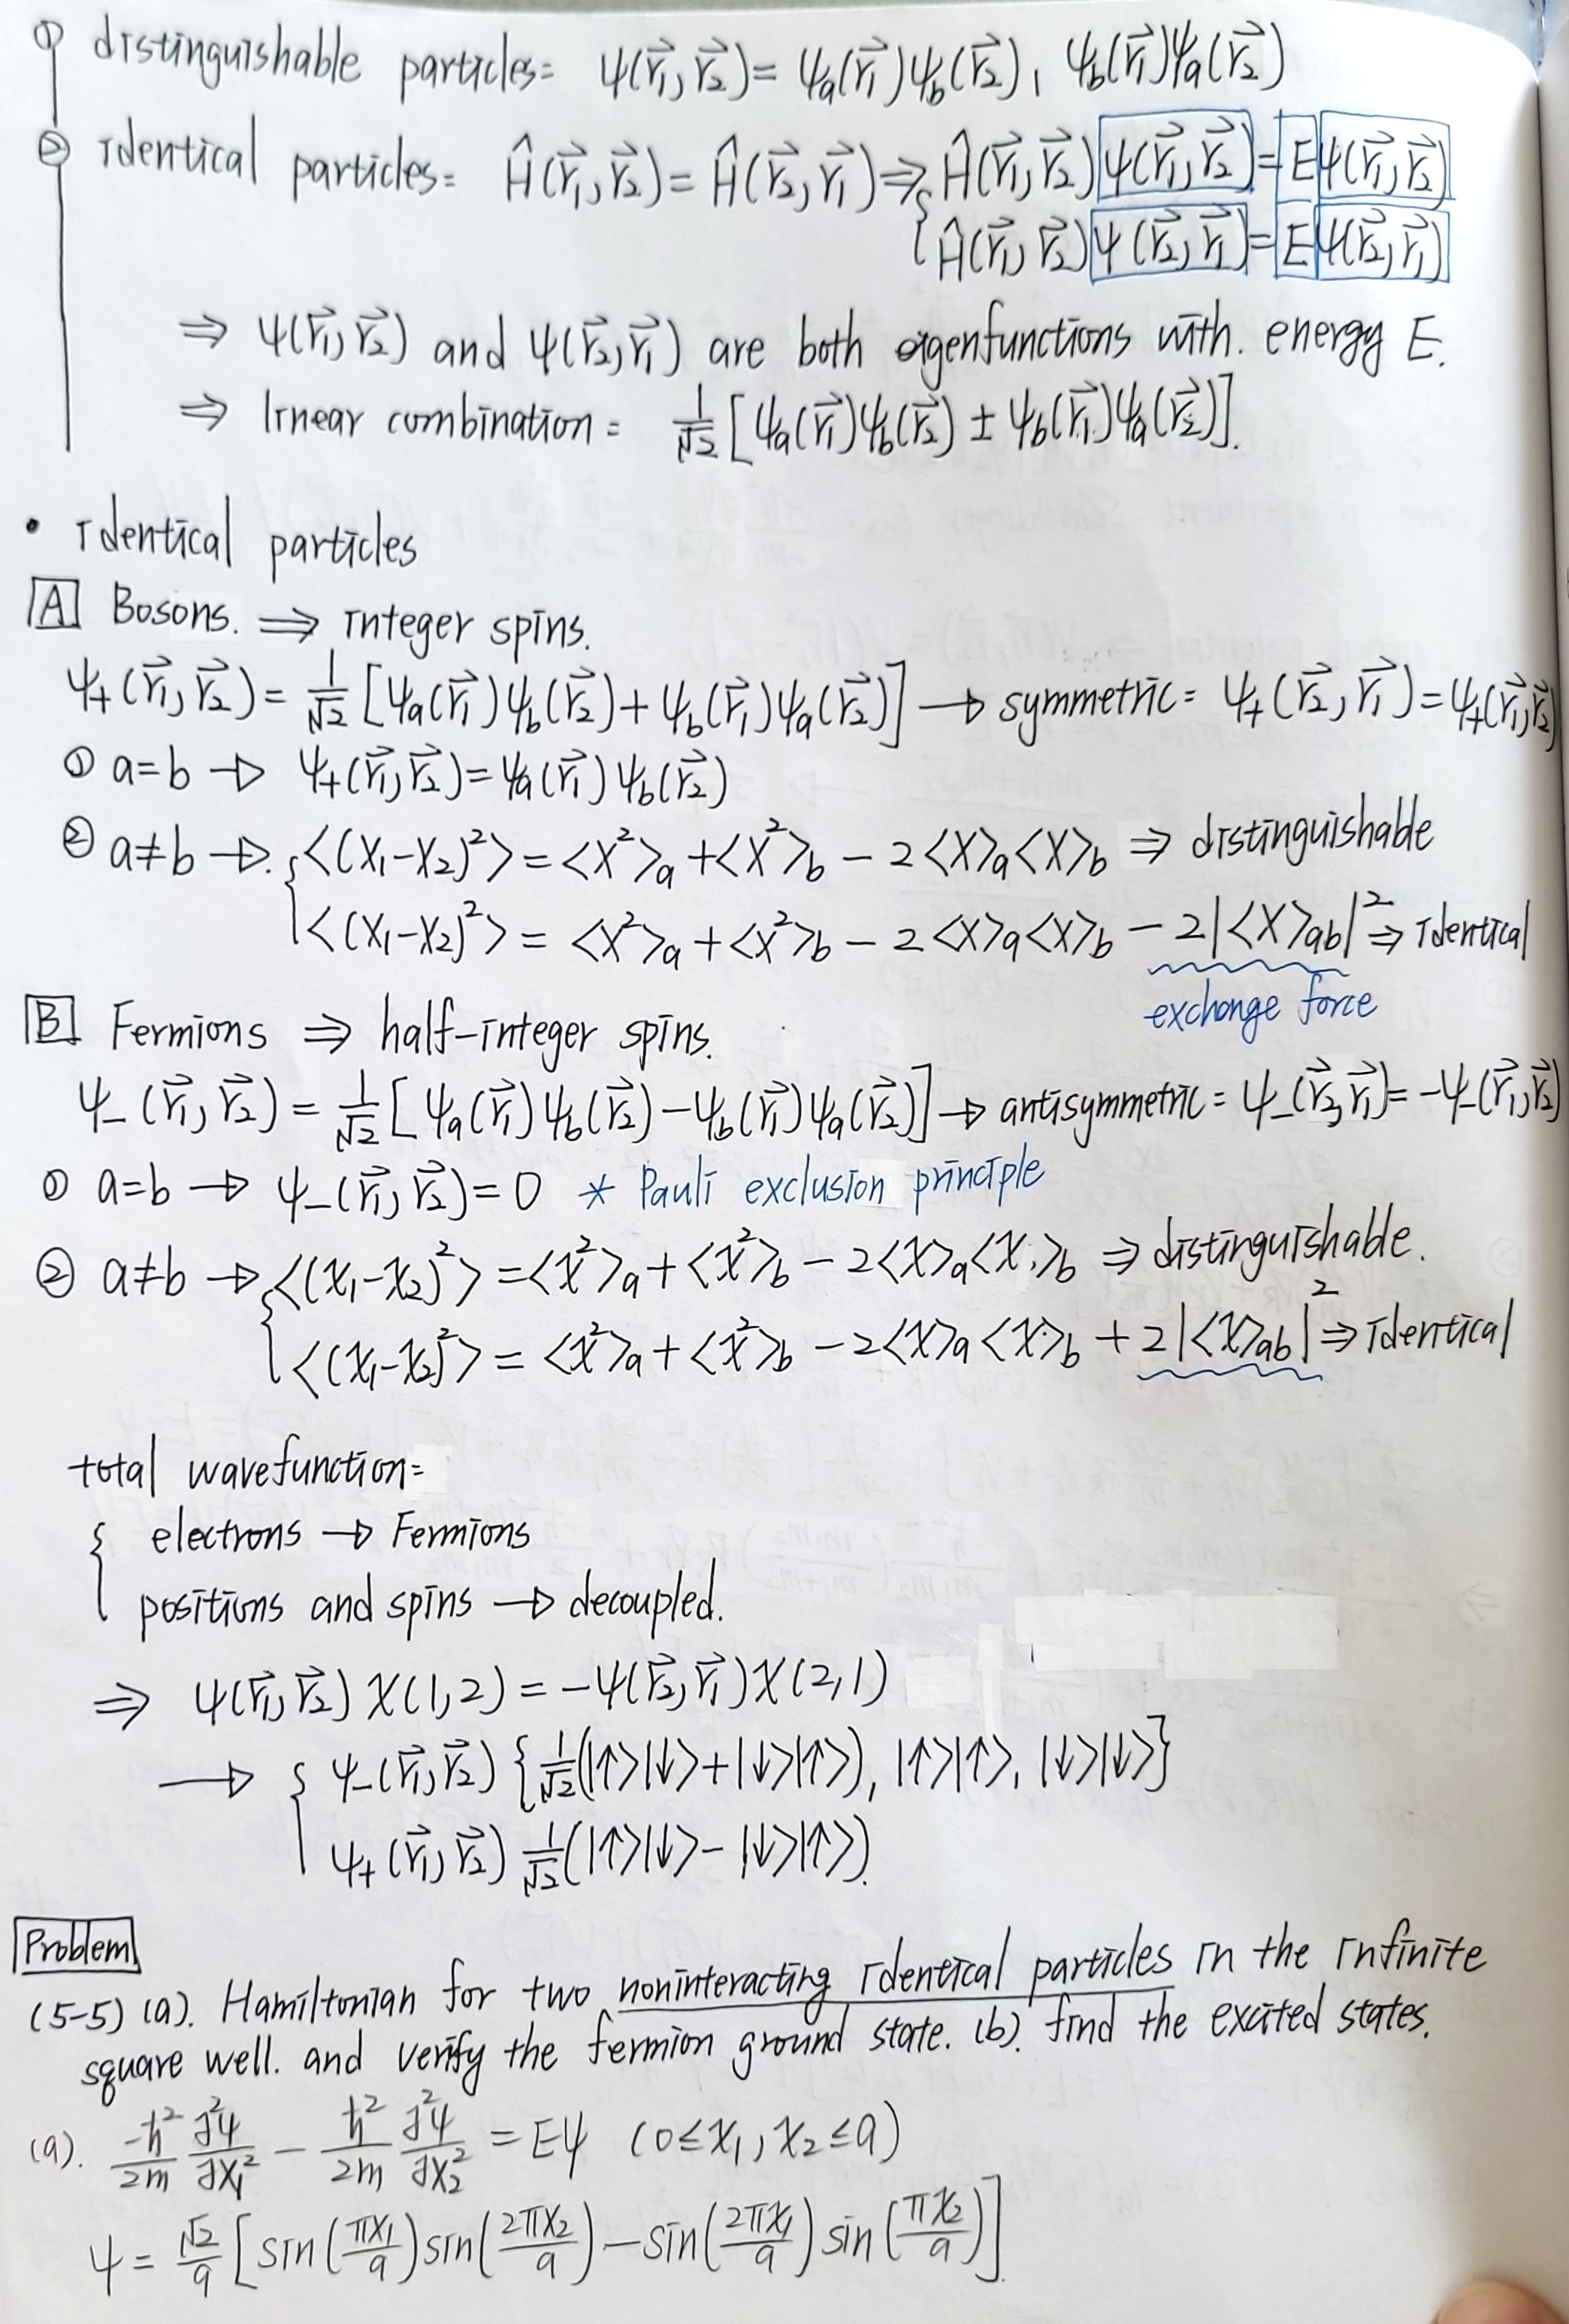 ① distinguishable particles= ψ(r⃗₁, r⃗₂)= ψa(r⃗₁)ψb(r⃗₂), ψb(r⃗₁)ψa(r⃗₂)
② identical particles= Ĥ(r⃗₁, r⃗₂)= Ĥ(r⃗₂, r⃗₁)⇒{Ĥ(r⃗₁, r⃗₂)ψ(r⃗₁, r⃗₂)=Eψ(r⃗₁, r⃗₂)
Ĥ(r⃗₁, r⃗₂)ψ(r⃗₂, r⃗₁)=Eψ(r⃗₂, r⃗₁)
⇒ ψ(r⃗₁, r⃗₂) and ψ(r⃗₂, r⃗₁) are both eigenfunctions with. energy E.
⇒ linear combination= 1/√2 [ψa(r⃗₁)ψb(r⃗₂) ± ψb(r⃗₁)ψa(r⃗₂)].
• identical particles
A Bosons. ⇒ integer spins.
ψ+(r⃗₁, r⃗₂)= 1/√2 [ψa(r⃗₁)ψb(r⃗₂)+ψb(r⃗₁)ψa(r⃗₂)] → symmetric= ψ+(r⃗₂, r⃗₁)=ψ+(r⃗₁, r⃗₂)
① a=b → ψ+(r⃗₁, r⃗₂)=ψa(r⃗₁)ψb(r⃗₂)
② a≠b →. {<(x₁-x₂)²> = <x²>a +<x²>b - 2<x>a<x>b ⇒ distinguishable
<(x₁-x₂)²> = <x²>a +<x²>b - 2<x>a<x>b - 2|<x>ab|² ⇒ identical
exchange force
B Fermions ⇒ half-integer spins.
ψ-(r⃗₁, r⃗₂) = 1/√2 [ψa(r⃗₁)ψb(r⃗₂)-ψb(r⃗₁)ψa(r⃗₂)] → antisymmetric= ψ-(r⃗₂, r⃗₁)= -ψ-(r⃗₁, r⃗₂)
① a=b → ψ-(r⃗₁, r⃗₂)=0 * Pauli exclusion principle
② a≠b → {<(x₁-x₂)²> =<x²>a + <x²>b - 2<x>a<x>b ⇒ distinguishable.
<(x₁-x₂)²> = <x²>a + <x²>b - 2<x>a<x>b + 2|<x>ab|² ⇒ identical
total wavefunction=
{ electrons → Fermions
positions and spins → decoupled.
⇒ ψ(r⃗₁, r⃗₂) χ(1,2) = -ψ(r⃗₂, r⃗₁)χ(2,1)
→ { ψ-(r⃗₁, r⃗₂) {1/√2(|↑>|↓>+|↓>|↑>), |↑>|↑>, |↓>|↓>}
ψ+(r⃗₁, r⃗₂) 1/√2(|↑>|↓>- |↓>|↑>).
Problem
(5-5) (a). Hamiltonian for two noninteracting identical particles in the infinite
square well. and verify the fermion ground state. (b). find the excited states.
(a). -ħ²/2m ∂²ψ/∂x₁² - ħ²/2m ∂²ψ/∂x₂² = Eψ (0≤x₁, x₂≤a)
ψ = √2/a [sin(πx₁/a)sin(2πx₂/a)-sin(2πx₁/a)sin(πx₂/a)].